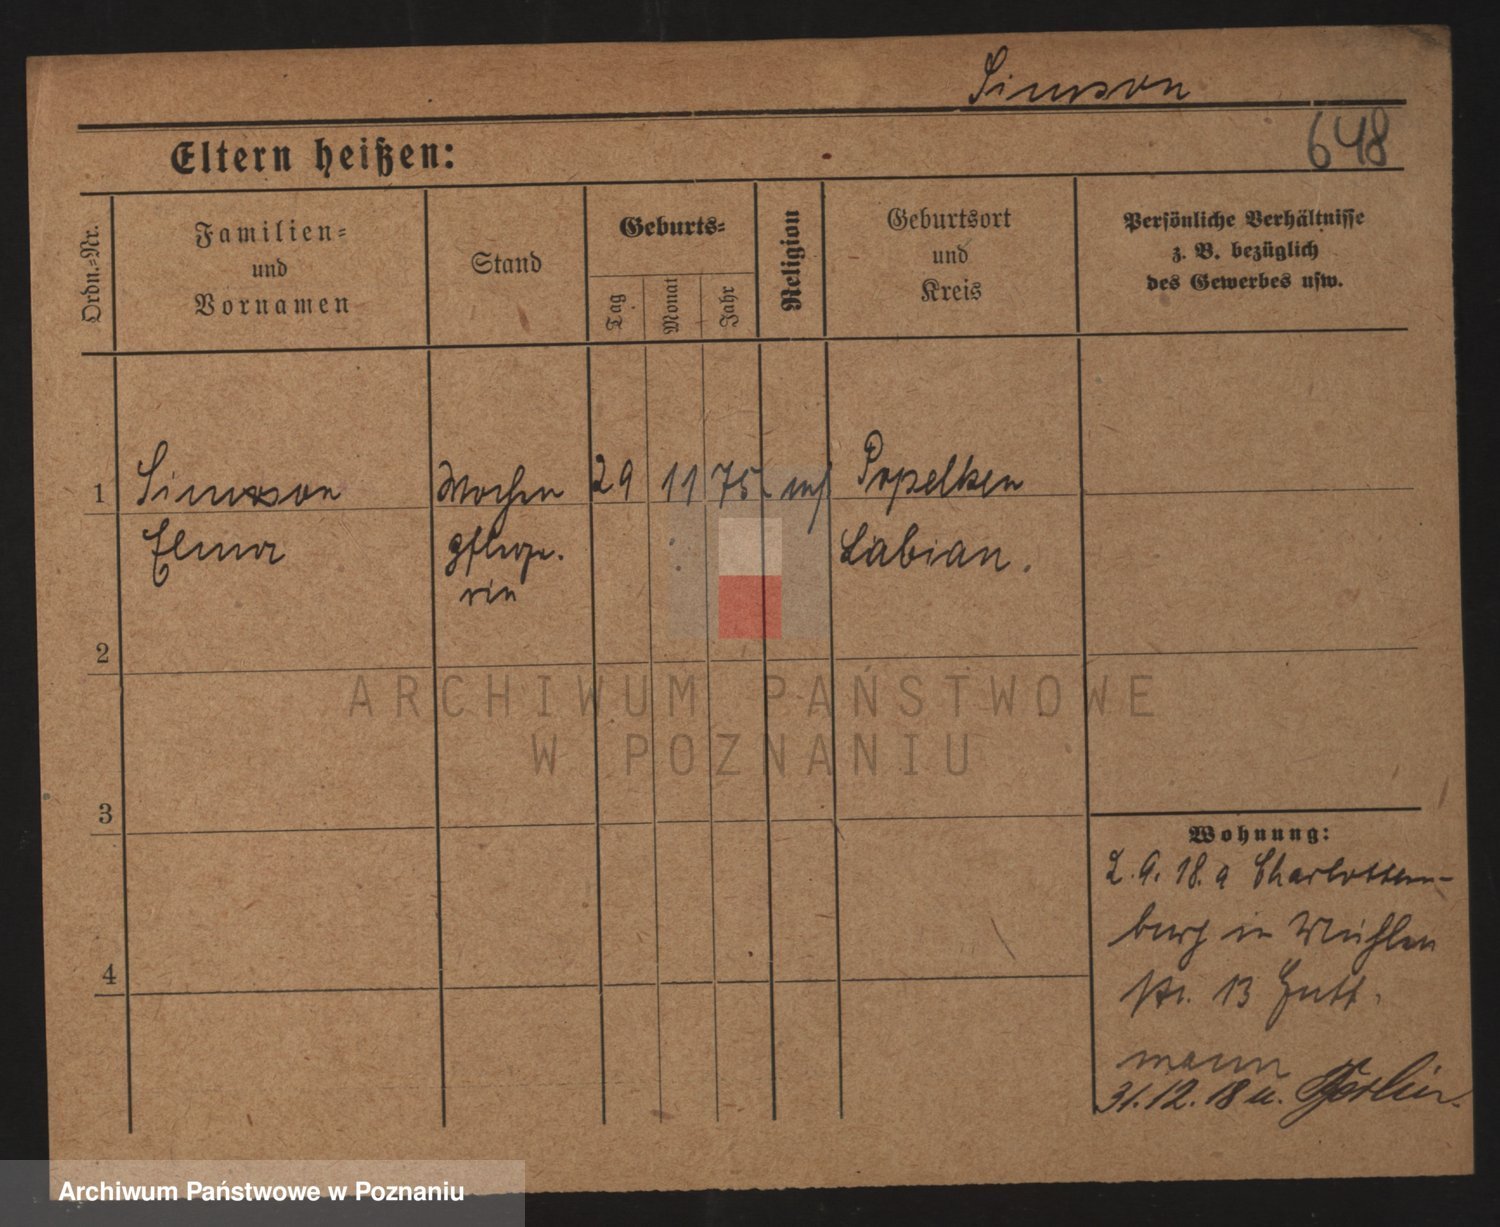 Simson
648
Eltern heißen:
Ordn.-Nr.
Familien-
und
Vornamen
Stand
Geburts-
Tag
Monat
Jahr
Religion
Geburtsort
und
Kreis
Persönliche Verhältnisse
z. B. bezüglich
des Gewerbes usw.
1 Simson Wochen 29 11 75 Popelken
Elma pflege- Labian.
rin
2
ARCHIWUM PAŃSTWOWE
W POZNANIU
3
Wohnung:
2.9.18. a Charlotten-
burg in Mühlen
str. 13 Gutt-
mann
4
31.12.18 u. Berlin.
Archiwum Państwowe w Poznaniu